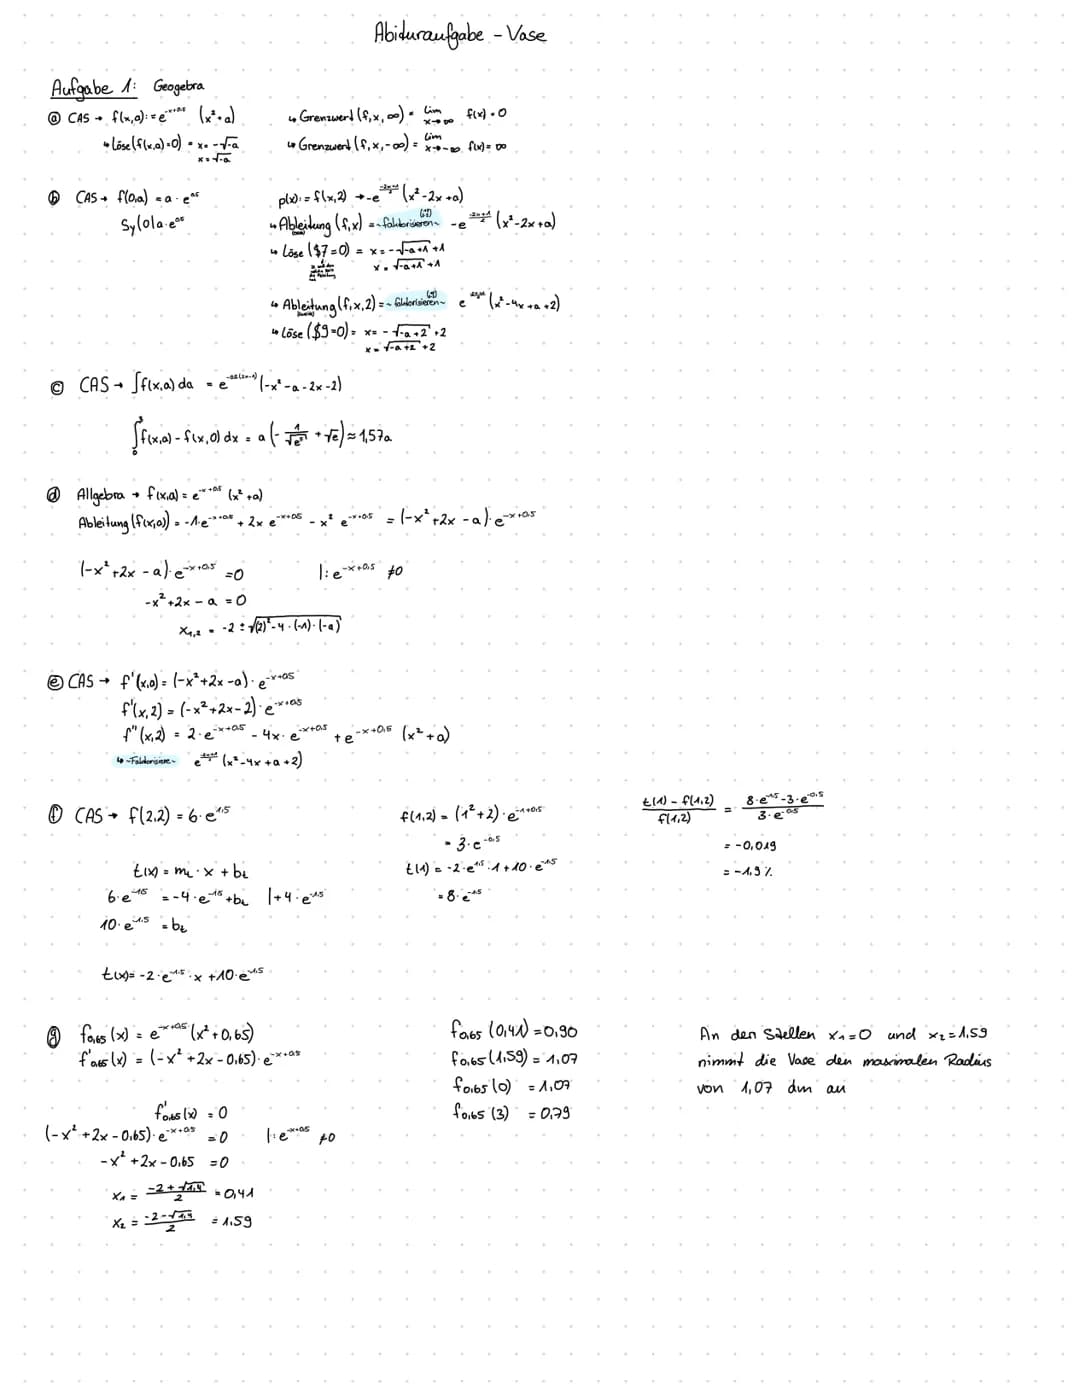 Abituraufgabe - Vase
Aufgabe 1: Geogebra
ⓐ CAS → f(x,a):=e^-x+0.5 (x²+a)
↳ Löse(f(x,a)=0) = x=-√-a
x=√-a
↳ Grenzwert(f,x,∞) = lim x→∞ f(x)=0
↳ Grenzwert(f,x,-∞) = lim x→-∞ f(x)=∞
ⓑ CAS → f(0,a) = a·e^0.5
Sy(0|a·e^0.5)
p(x):=f(x,2) → -e (x²-2x+a)
↳ Ableitung(f,x) = ~faktorisieren~ -e (x²-2x+a)
↳ Löse ($7=0) = x=-√-a+1+1
x=√-a+1+1
↳ Ableitung(f,x,2) = ~faktorisieren~ e (x²-4x+a+2)
↳ Löse ($9=0) = x= -√-a+2+2
x=√-a+2+2
ⓒ CAS → ∫f(x,a) da = e (-x²-a-2x-2)
∫₀³ f(x,a) - f(x,0) dx = a(- + √e) ≈ 1,57a
ⓓ Allgebra → f(x,a) = e^-x+0.5 (x²+a)
Ableitung(f(x,a)) = -1·e^-x+0.5 + 2x e^-x+0.5 - x² e^-x+0.5 = (-x²+2x-a)·e^-x+0.5
(-x²+2x-a)·e^-x+0.5 =0 |:e^-x+0.5 ≠0
-x²+2x-a =0
x₁,₂ = -2±√(2)²-4·(-1)·(-a)
ⓔ CAS → f'(x,a) = (-x²+2x-a)·e^-x+0.5
f'(x,2) = (-x²+2x-2)·e^-x+0.5
f"(x,2) = 2·e^-x+0.5 - 4x·e^-x+0.5 + e^-x+0.5 (x²+a)
↳ ~Faktorisiere~ e (x²-4x+a+2)
ⓕ CAS → f(2,2) = 6·e^-1.5
t(x) = mₜ·x + bₜ
6·e^-1.5 = -4·e^-1.5+bₜ |+4·e^-1.5
10·e^-1.5 = bₜ
t(x)= -2·e^-1.5·x +10·e^-1.5
f(1,2) = (1²+2)·e^-1+0.5
= 3·e^-0.5
t(1) = -2·e^-1.5·1+10·e^-1.5
= 8·e^-1.5
t(1) - f(1,2) / f(1,2) = 8·e^-1.5-3·e^-0.5 / 3·e^-0.5
= -0,019
= -1,9 %
ⓖ f0,65 (x) = e^-x+0.5 (x²+0,65)
f'0,65 (x) = (-x²+2x-0,65)·e^-x+0.5
f'0,65 (x) = 0
(-x²+2x-0,65)·e^-x+0.5 =0 |:e^-x+0.5 ≠0
-x²+2x-0,65 =0
x₁ = -2+√1,4 / 2 = 0,41
x₂ = -2-√1,4 / 2 = 1,59
f0,65 (0,41) = 0,90
f0,65 (1,59) = 1,07
f0,65 (0) = 1,07
f0,65 (3) = 0,79
An den Stellen x₁=0 und x₂=1,59
nimmt die Vase den maximalen Radius
von 1,07 dm an